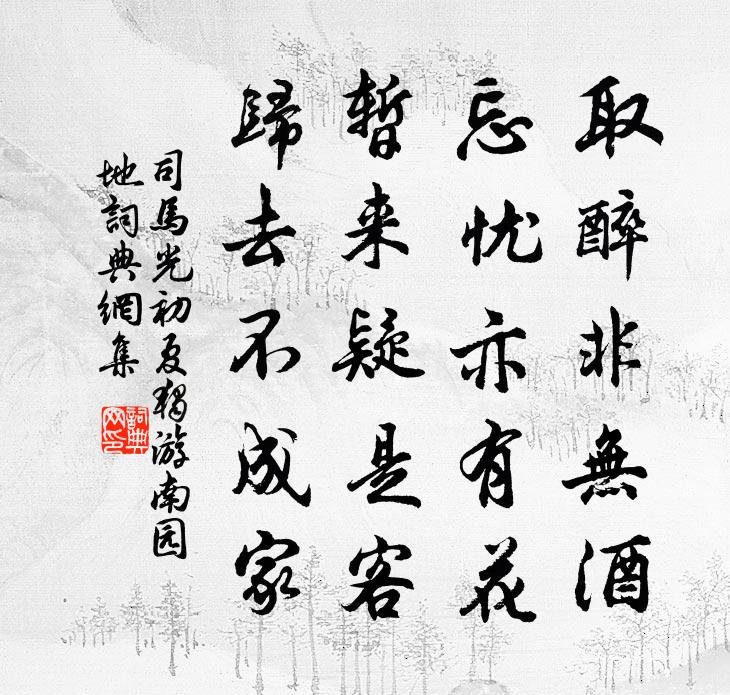 取醉非無酒
忘忧亦有花
暫来疑是客
歸去不成家
司馬光初夏独游南园
地詞典網集
詞典网印